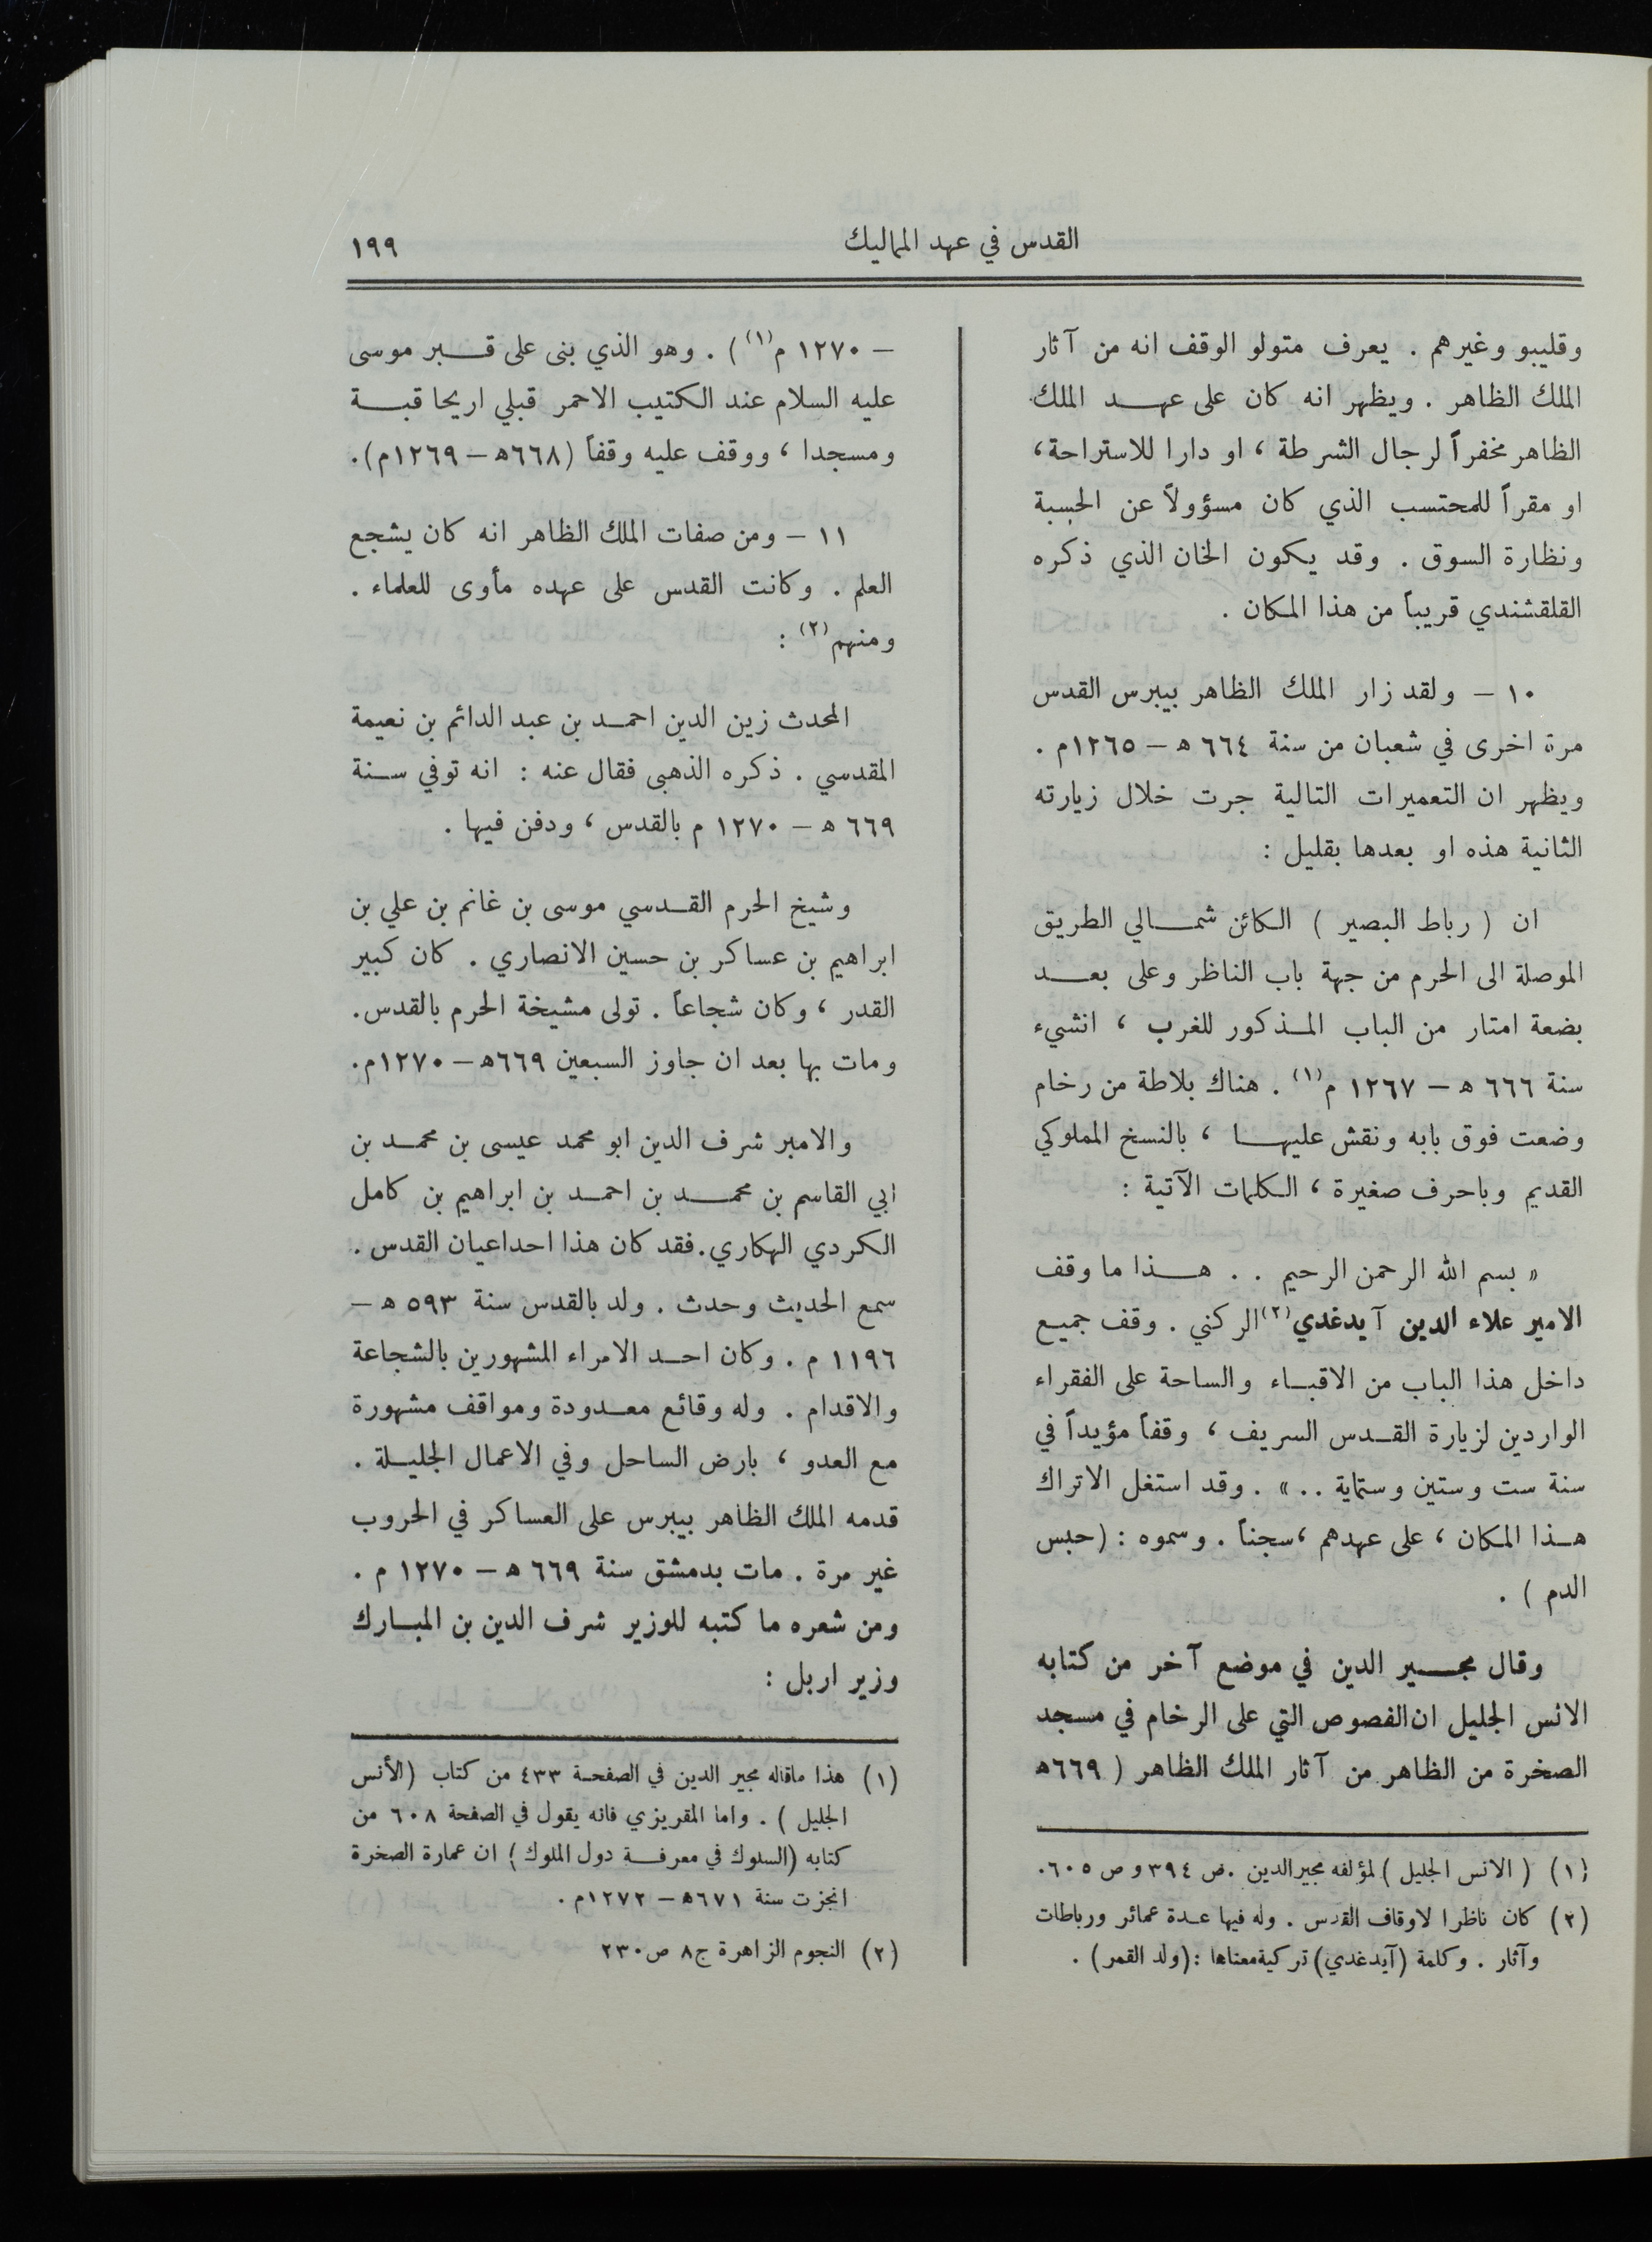 القدس في عهد المماليك
١٩٩
وقليبو وغيرهم . يعرف متولو الوقف انه من آثار
الملك الظاهر . ويظهر انه كان على عهد الملك
الظاهر مخفراً لرجال الشرطة ، او دارا للاستراحة ،
او مقراً للمحتسب الذي كان مسؤولاً عن الحسبة
ونظارة السوق . وقد يكون الخان الذي ذكره
القلقشندي قريباً من هذا المكان .
١٠ – ولقد زار الملك الظاهر بيبرس القدس
مرة اخرى في شعبان من سنة ٦٦٤ هـ – ١٢٦٥م .
ويظهر ان التعميرات التالية جرت خلال زيارته
الثانية هذه او بعدها بقليل :
ان ( رباط البصير ) الكائن شمالي الطريق
الموصلة الى الحرم من جهة باب الناظر وعلى بعد
بضعة امتار من الباب المذكور للغرب ، انشيء
سنة ٦٦٦ هـ – ١٢٦٧ م (١) . هناك بلاطة من رخام
وضعت فوق بابه ونقش عليها ، بالنسخ المملوكي
القديم وباحرف صغيرة ، الكلمات الآتية :
« بسم الله الرحمن الرحيم . . هذا ما وقف
الامير علاء الدين آيدغدي (٢) الركني . وقف جميع
داخل هذا الباب من الاقباء والساحة على الفقراء
الواردين لزيارة القدس السريف ، وقفاً مؤيداً في
سنة ست وستين وستماية . . » . وقد استغل الاتراك
هذا المكان ، على عهدهم ، سجناً . وسموه : (حبس
الدم ) .
وقال مجير الدين في موضع آخر من كتابه
الانس الجليل ان الفصوص التي على الرخام في مسجد
الصخرة من الظاهر من آثار الملك الظاهر ( ٦٦٩هـ
(١) ( الانس الجليل ) لمؤلفه مجير الدين . ص ٣٩٤ و ص ٦٠٥ .
(٢) كان ناظرا لاوقاف القدس . وله فيها عدة عمائر ورباطات
وآثار . وكلمة (آيدغدي) تركية معناها : (ولد القمر) .
– ١٢٧٠ م (١) ) . وهو الذي بنى على قبر موسى
عليه السلام عند الكتيب الاحمر قبلي اريحا قبة
ومسجدا ، ووقف عليه وقفاً (٦٦٨هـ – ١٢٦٩م) .
١١ – ومن صفات الملك الظاهر انه كان يشجع
العلم . وكانت القدس على عهده مأوى للعلماء .
ومنهم (٢) :
المحدث زين الدين احمد بن عبد الدائم بن نعيمة
المقدسي . ذكره الذهبى فقال عنه : انه توفي سنة
٦٦٩ هـ – ١٢٧٠ م بالقدس ، ودفن فيها .
وشيخ الحرم القدسي موسى بن غانم بن علي بن
ابراهيم بن عساكر بن حسين الانصاري . كان كبير
القدر ، وكان شجاعاً . تولى مشيخة الحرم بالقدس .
ومات بها بعد ان جاوز السبعين ٦٦٩هـ – ١٢٧٠م .
والامير شرف الدين ابو محمد عيسى بن محمد بن
ابي القاسم بن محمد بن احمد بن ابراهيم بن كامل
الكردي الهكاري . فقد كان هذا احد اعيان القدس .
سمع الحديث وحدث . ولد بالقدس سنة ٥٩٣ هـ –
١١٩٦ م . وكان احد الامراء المشهورين بالشجاعة
والاقدام . وله وقائع معدودة ومواقف مشهورة
مع العدو ، بارض الساحل وفي الاعمال الجليلة .
قدمه الملك الظاهر بيبرس على العساكر في الحروب
غير مرة . مات بدمشق سنة ٦٦٩ هـ – ١٢٧٠ م .
ومن شعره ما كتبه للوزير شرف الدين بن المبارك
وزير اربل :
(١) هذا ماقاله مجير الدين في الصفحة ٤٣٣ من كتاب (الأنس
الجليل ) . واما المقريزي فانه يقول في الصفحة ٦٠٨ من
كتابه (السلوك في معرفة دول الملوك) ان عمارة الصخرة
انجزت سنة ٦٧١هـ – ١٢٧٢م .
(٢) النجوم الزاهرة ج٨ ص٢٣٠